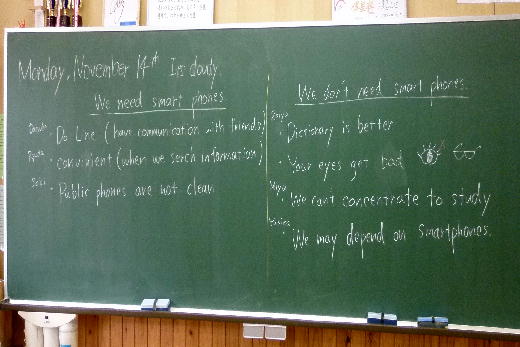 Monday, November 14th It's
We need smart phones
Do Line (have communication with friends)
convinient (when we serch information)
Public phones are not clean
We don't need smart phones.
Dictionary is better
Your eyes get bad
We can't concentrate to study
We may depend on smartphones.